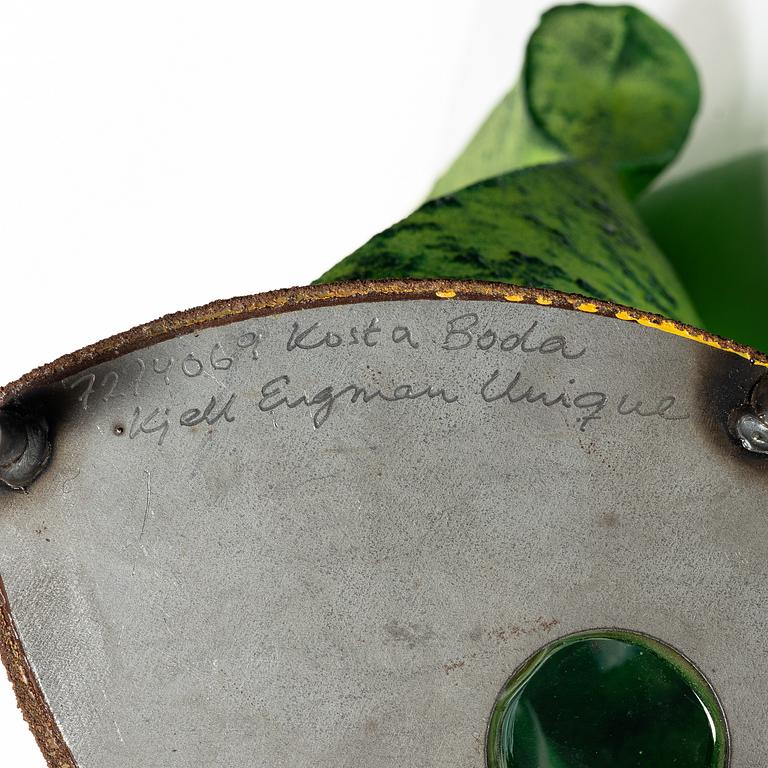 7274069 Kosta Boda
Kjell Engman Unique